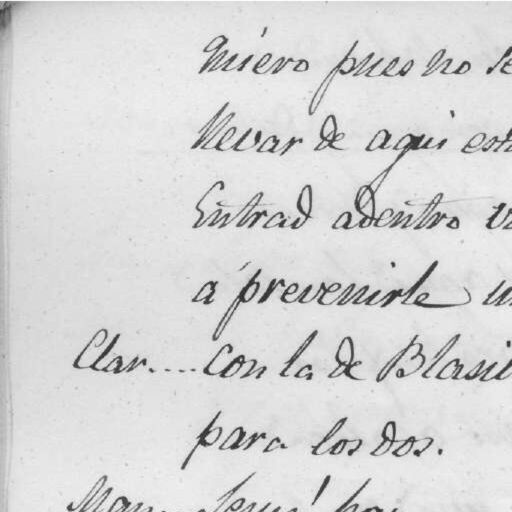 Quiero pues no se
llevar de aqui est
Entrad adentro v
a prevenirle u
Clar.... Con la de Blasi
para los dos.